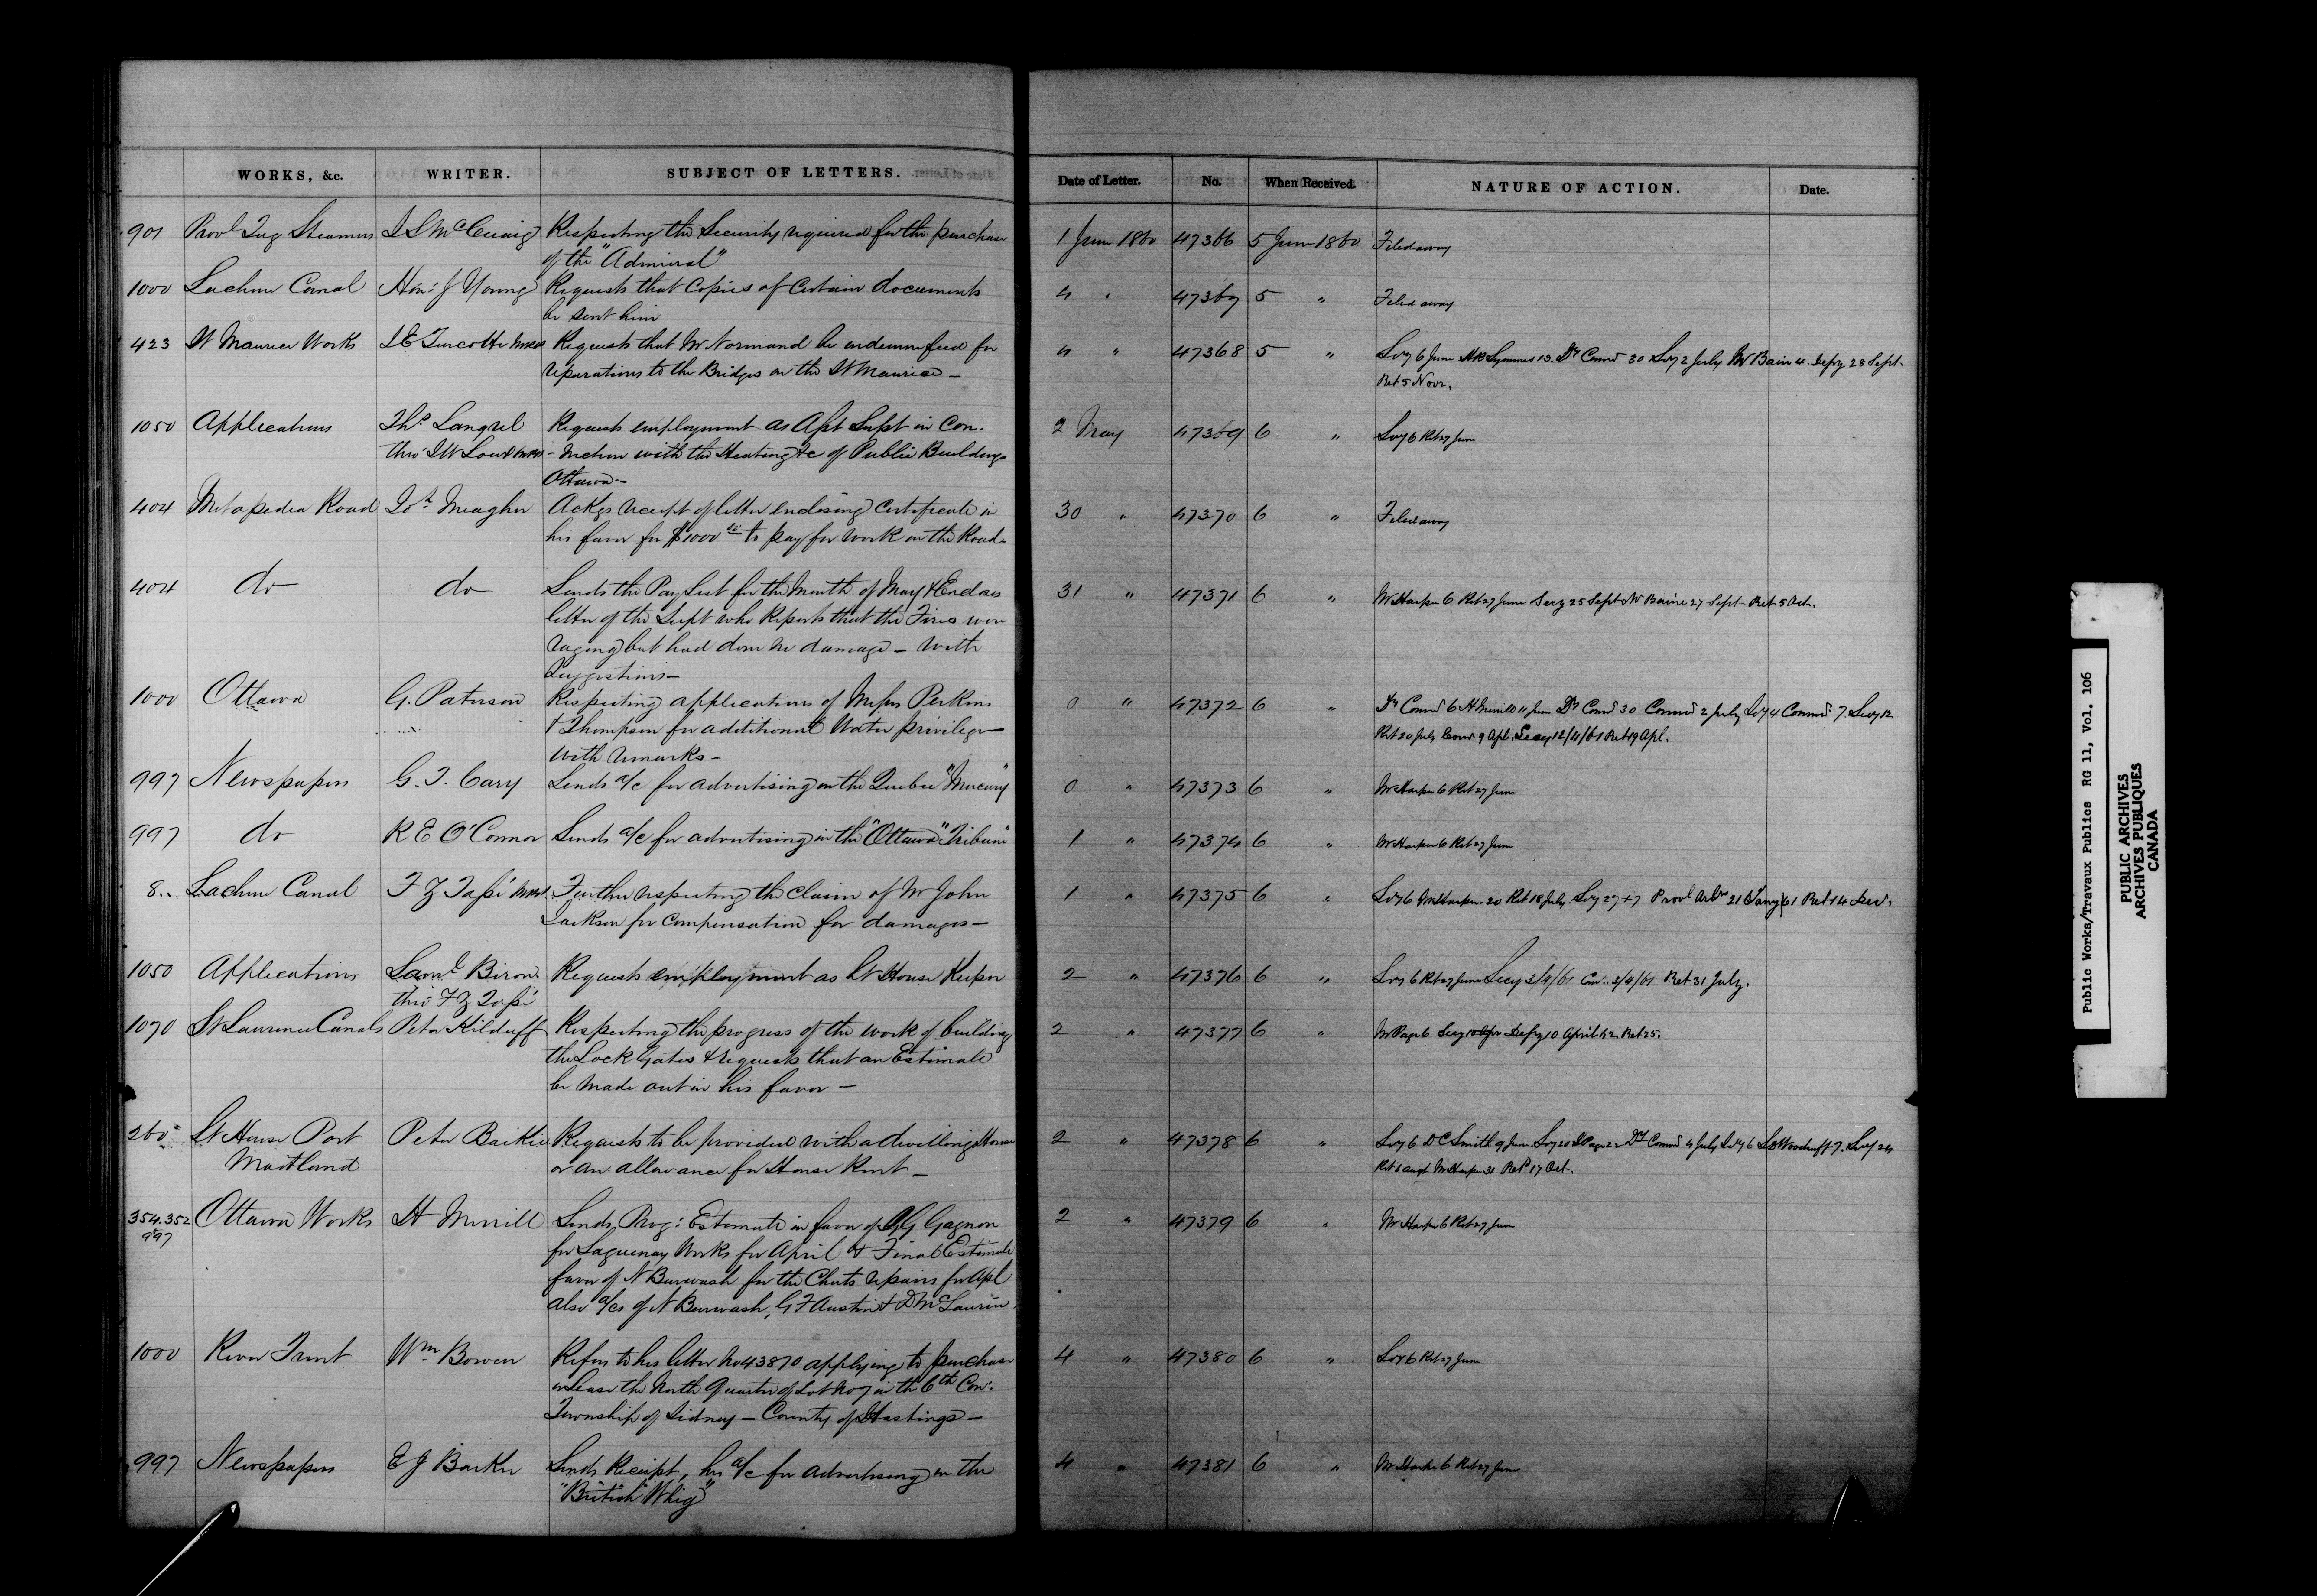 WORKS, &c. WRITER. SUBJECT OF LETTERS. Date of Letter. No. When Received. NATURE OF ACTION. Date.
901 Provl Tug Steamers McCuaig Respecting the Security required for the purchase 1 June 1860 47366 5 June 1860 Filed away
of the "Admiral"
1000 Lachine Canal Hon: J Young Requests that Copies of Certain documents 4 " 47367 5 " Filed away
be sent him
423 St Maurice Works J E Turcotte MPP Requests that Mr Normand be indemnified for 4 " 47368 5 " Secy 6 June Symmes 13. Dy Commr 30 Secy 2 July Mr Bain 4. Depy 28 Sept.
reparations to the Bridges on the St Maurice — Ret 5 Novr.
1050 Applications Ths Langrel Requests employment as Asst Supt in Con- 2 May 47369 6 " Secy 6 Ret 27 June
thro' MPP -nection with the Heating &c of Public Buildings
Ottawa —
404 Metapedia Road Jos Meagher Ackgs receipt of letter enclosing Certificate in 30 " 47370 6 " Filed away
his favor for $1000 to pay for work on the Road
404 do do Sends the Pay List for the Month of May & Encloses 31 " 47371 6 " Mr Harper 6 Ret 27 June Secy 25 Sept Mr Baine 27 Sept Ret 5 Oct.
letter of the Supt who Reports that the Fires were
raging but had done no damage — With
Suggestions —
1000 Ottawa G. Paterson Respecting applications of Messrs Perkins 0 " 47372 6 " Dy Commr 6 H Merrill 11 June Dy Commr 30 Commr 2 July Secy 4 Commr 7. Secy 12
& Thompson for additional Water privileges Ret 20 July Commr 9 Apl. Secy 12/4/61 Ret 19 Apl.
With remarks —
997 Newspapers G. T. Cary Sends a/c for advertising in the Quebec "Mercury" 0 " 47373 6 " Mr Harper 6 Ret 27 June
997 do R E O'Connor Sends a/c for advertising in the "Ottawa Tribune" 1 " 47374 6 " Mr Harper 6 Ret 27 June
8 Lachine Canal F Z Tassé Further respecting the Claim of Mr John 1 " 47375 6 " Secy 6 Mr Harper 20 Ret 18 July. Secy 27 Provl 21 Jany/61 Ret 14 Decr.
Jackson for Compensation for damages —
1050 Applications Saml Biron Requests employment as Lt House Keeper 2 " 47376 6 " Secy 6 Ret 27 June Secy 3/4/61 3/4/61 Ret 31 July.
thro' F Z Tassé
1070 St Lawrence Canals Peter Kilduff Respecting the progress of the work of building 2 " 47377 6 " Mr Page 6 Secy 10 Depy 10 April 62. Ret 25.
the Lock Gates & requests that an Estimate
be made out in his favor —
260 Lt House Port Peter Baikie Requests to be provided with a dwelling House 2 " 47378 6 " Secy 6 D C Smith 9 June Secy 20 Page 22 Dy Commr 4 July Secy 6 Woodruff 7. Secy 24
Maitland or an allowance for House Rent — Ret 1 Augt Mr Harper 31 Retd 17 Oct.
354.352 Ottawa Works H Merrill Sends Prog: Estimate in favor of G Gagnon 2 " 47379 6 " Mr Harper 6 Ret 27 June
997 for Saguenay Works for April & Final Estimate
favor of N Burwash for the Chats repairs for Apl
also a/cs of N Burwash, G F Austin & D McLaurin
1000 River Trent Wm Bowen Refers to his letter No 43870 applying to purchase 4 " 47380 6 " Secy 6 Ret 27 June
or Lease the North Quarter of Lot No 7 in the 6th Con.
Township of Sidney — County of Hastings —
997 Newspapers E J Barker Sends Receipt, his a/c for advertising in the 4 " 47381 6 " Mr Harper 6 Ret 27 June
"British Whig"
Public Works/Travaux Publics RG 11, Vol. 106
PUBLIC ARCHIVES
ARCHIVES PUBLIQUES
CANADA